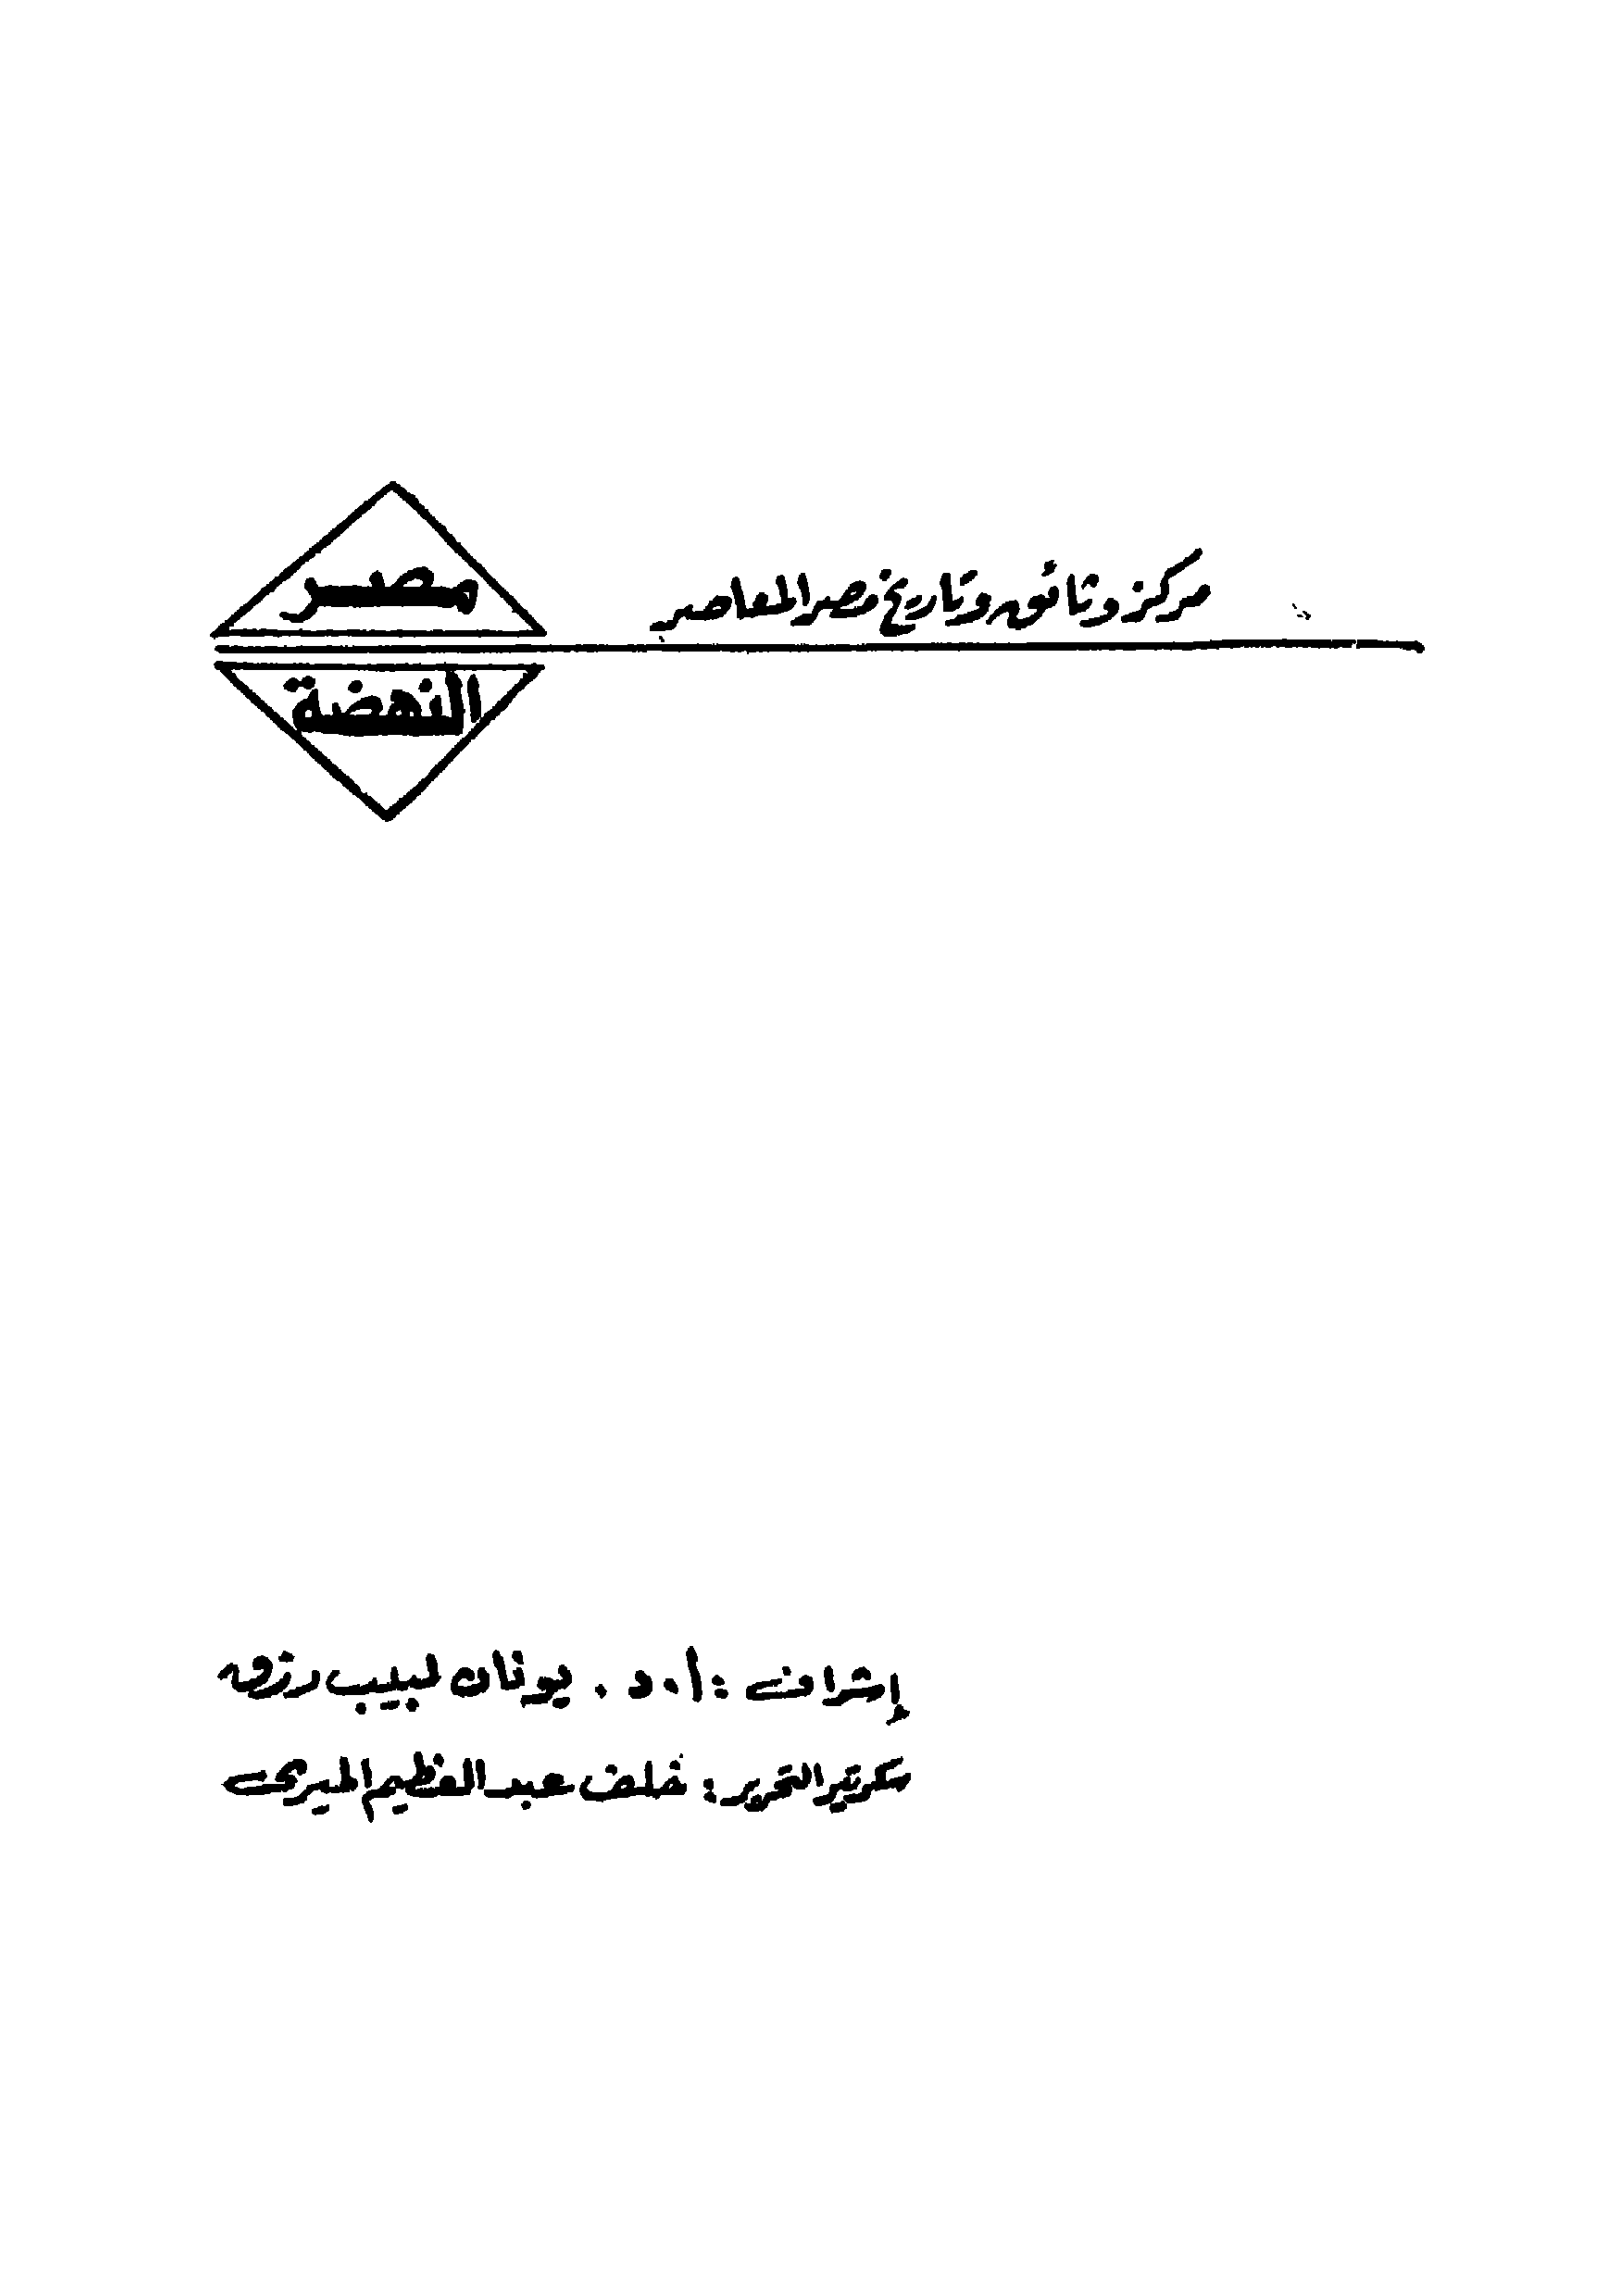 مركز وثائق وتاريخ مصر المعاصر
مصر
النهضة
إشراف : أ . د . يونان لبيب رزق
سكرتير التحرير : خلف عبد العظيم الميرى